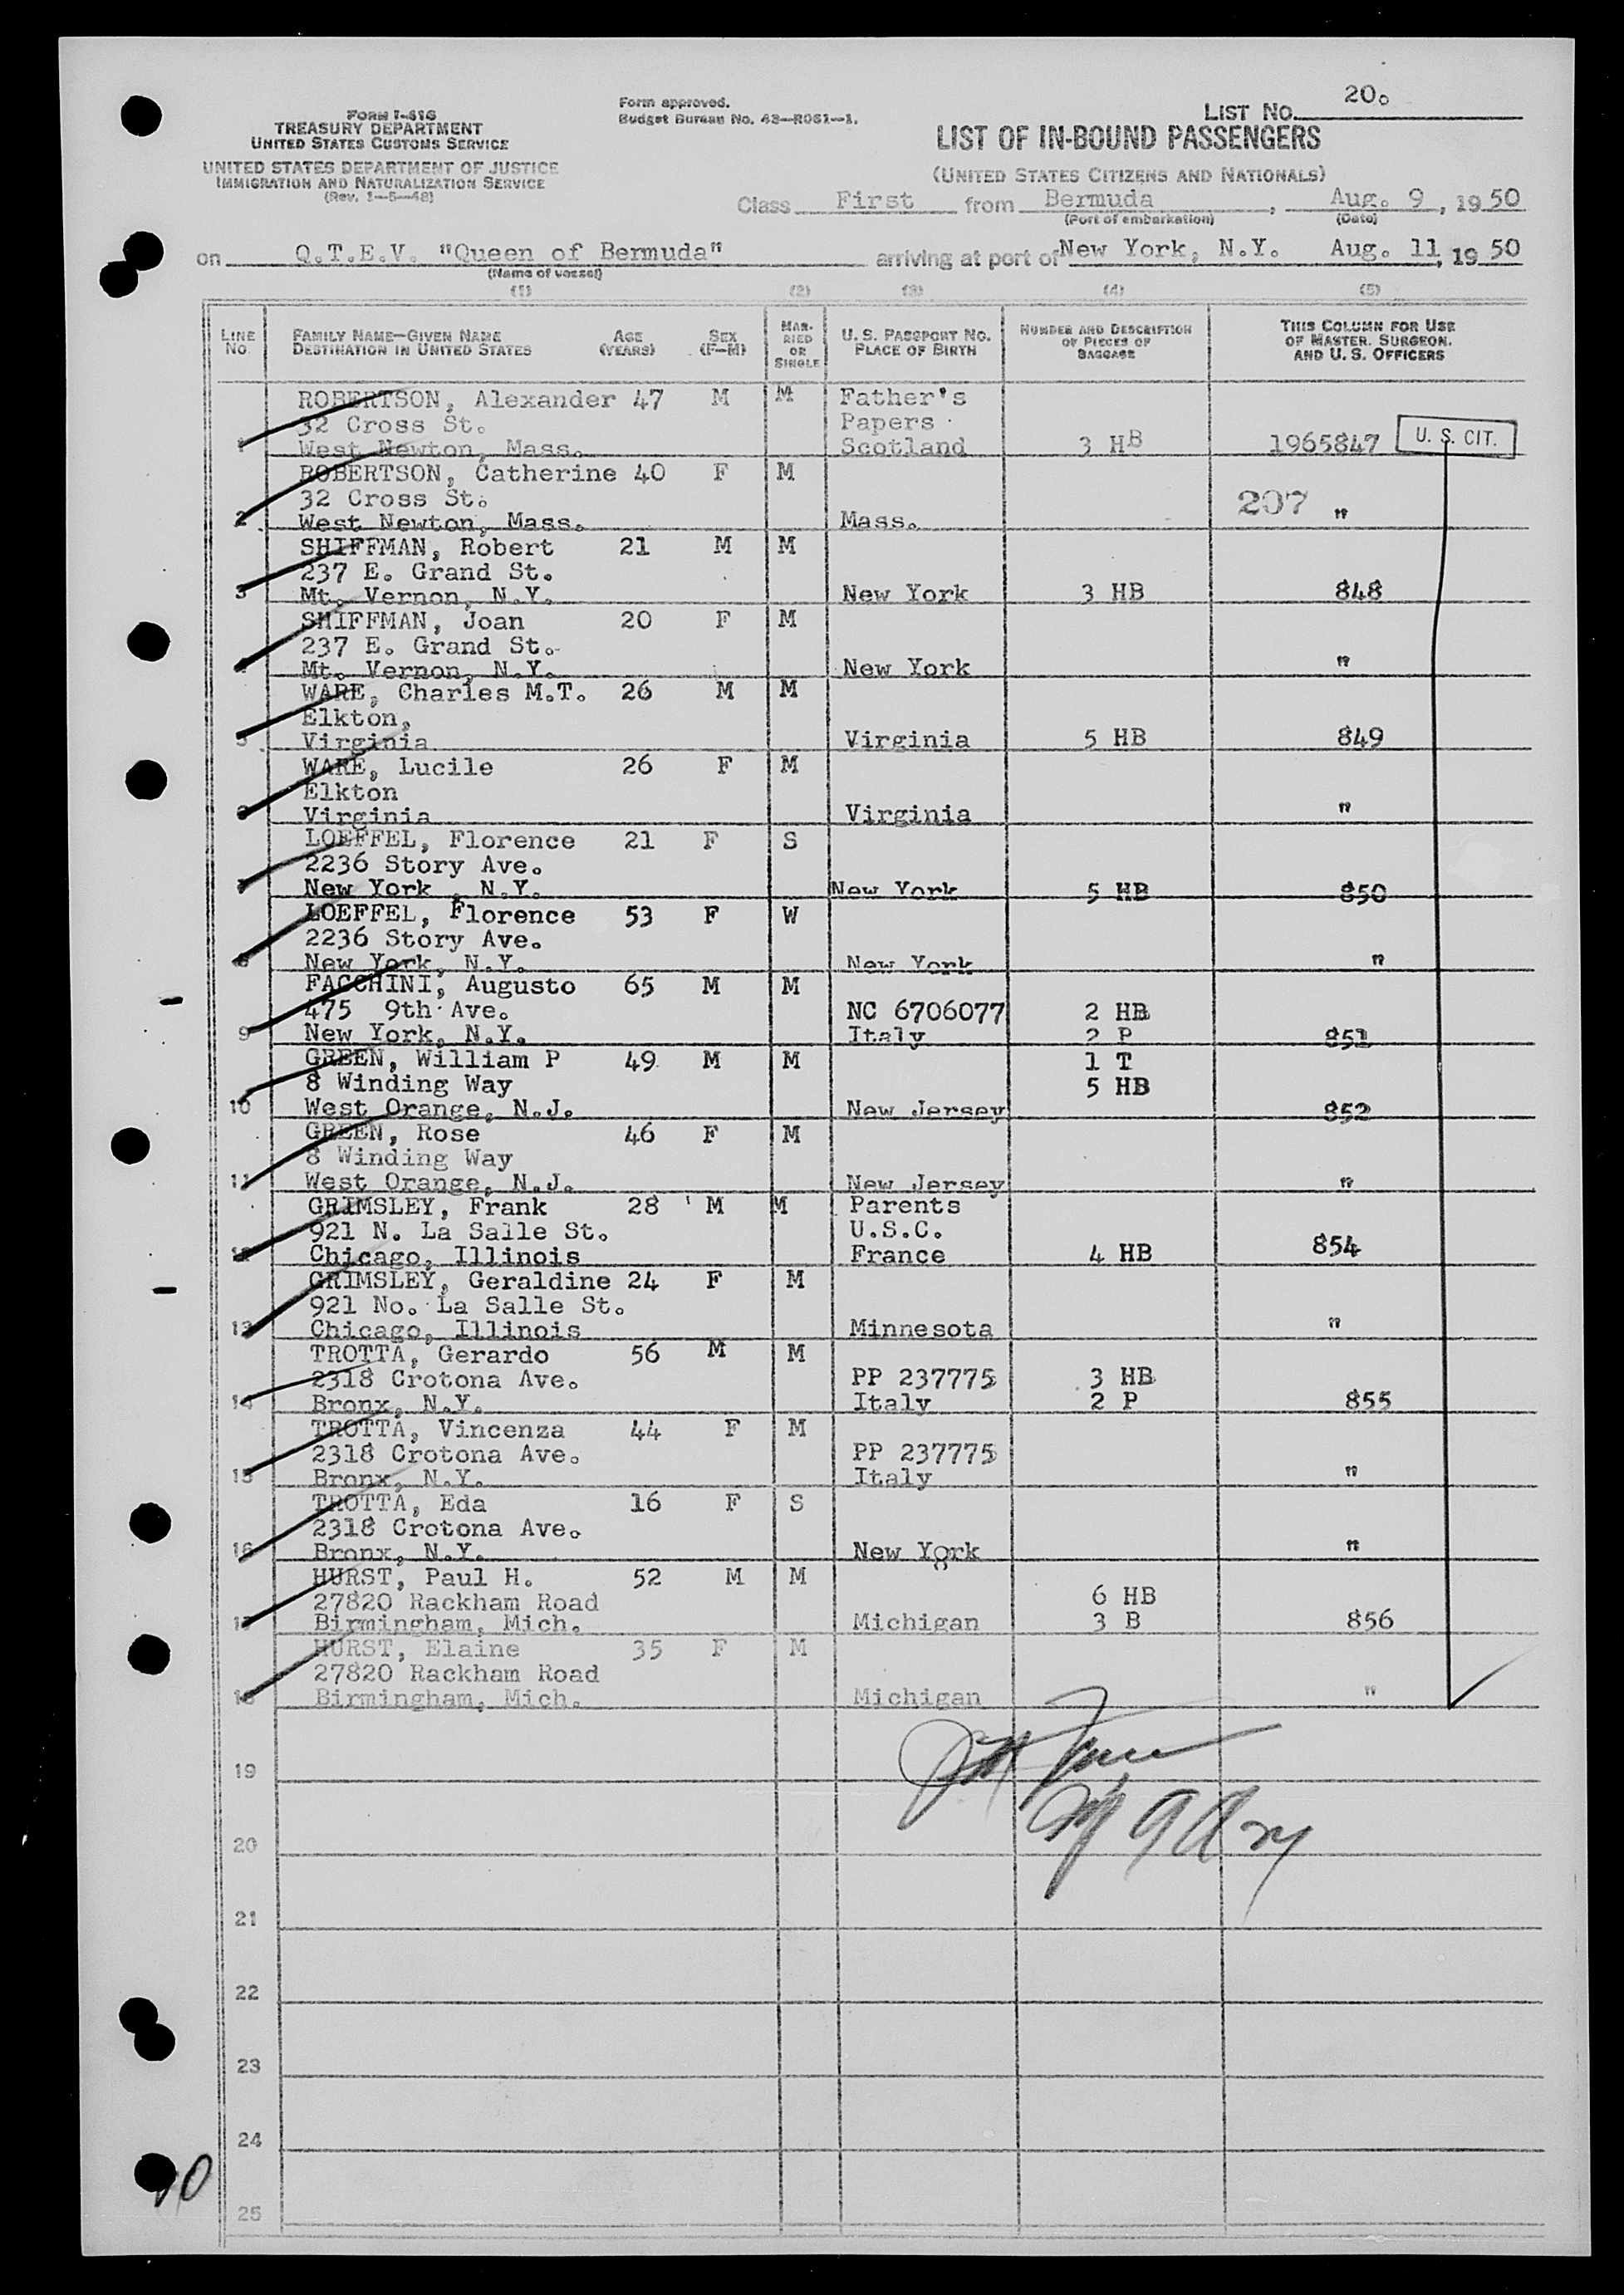 LIST No. 20.
FORM I-416
TREASURY DEPARTMENT
UNITED STATES CUSTOMS SERVICE
UNITED STATES DEPARTMENT OF JUSTICE
IMMIGRATION AND NATURALIZATION SERVICE
(Rev. 1-5-48)
Form approved.
Budget Bureau No. 43-R061-1.
LIST OF IN-BOUND PASSENGERS
(UNITED STATES CITIZENS AND NATIONALS)
Class First from Bermuda, Aug. 9, 1950
(Port of embarkation) (Date)
on Q.T.E.V. "Queen of Bermuda" arriving at port of New York, N.Y. Aug. 11, 1950
(Name of vessel)
(1) (2) (3) (4) (5)
LINE No. FAMILY NAME—GIVEN NAME DESTINATION IN UNITED STATES AGE (YEARS) SEX (F—M) MARRIED OR SINGLE U. S. PASSPORT NO. PLACE OF BIRTH NUMBER AND DESCRIPTION OF PIECES OF BAGGAGE THIS COLUMN FOR USE OF MASTER, SURGEON, AND U. S. OFFICERS
ROBERTSON, Alexander 47 M M Father's
32 Cross St. Papers
1 West Newton, Mass. Scotland 3 HB 1965847 U. S. CIT.
ROBERTSON, Catherine 40 F M
32 Cross St. 207 "
2 West Newton, Mass. Mass.
SHIFFMAN, Robert 21 M M
237 E. Grand St.
3 Mt. Vernon, N.Y. New York 3 HB 848
SHIFFMAN, Joan 20 F M
237 E. Grand St.
4 Mt. Vernon, N.Y. New York "
WARE, Charles M.T. 26 M M
Elkton,
5 Virginia Virginia 5 HB 849
WARE, Lucile 26 F M
Elkton
6 Virginia Virginia "
LOEFFEL, Florence 21 F S
2236 Story Ave.
7 New York, N.Y. New York 5 HB 850
LOEFFEL, Florence 53 F W
2236 Story Ave.
8 New York, N.Y. New York "
FACCHINI, Augusto 65 M M
475 9th Ave. NC 6706077 2 HB
9 New York, N.Y. Italy 2 P 851
GREEN, William P 49 M M 1 T
8 Winding Way 5 HB
10 West Orange, N.J. New Jersey 852
GREEN, Rose 46 F M
8 Winding Way
11 West Orange, N.J. New Jersey "
GRIMSLEY, Frank 28 M M Parents
921 N. La Salle St. U.S.C.
12 Chicago, Illinois France 4 HB 854
GRIMSLEY, Geraldine 24 F M
921 No. La Salle St.
13 Chicago, Illinois Minnesota "
TROTTA, Gerardo 56 M M
2318 Crotona Ave. PP 237775 3 HB
14 Bronx, N.Y. Italy 2 P 855
TROTTA, Vincenza 44 F M
2318 Crotona Ave. PP 237775
15 Bronx, N.Y. Italy "
TROTTA, Eda 16 F S
2318 Crotona Ave.
16 Bronx, N.Y. New York "
HURST, Paul H. 52 M M
27820 Rackham Road 6 HB
17 Birmingham, Mich. Michigan 3 B 856
HURST, Elaine 35 F M
27820 Rackham Road
18 Birmingham, Mich. Michigan "
19
20
21
22
23
24
25